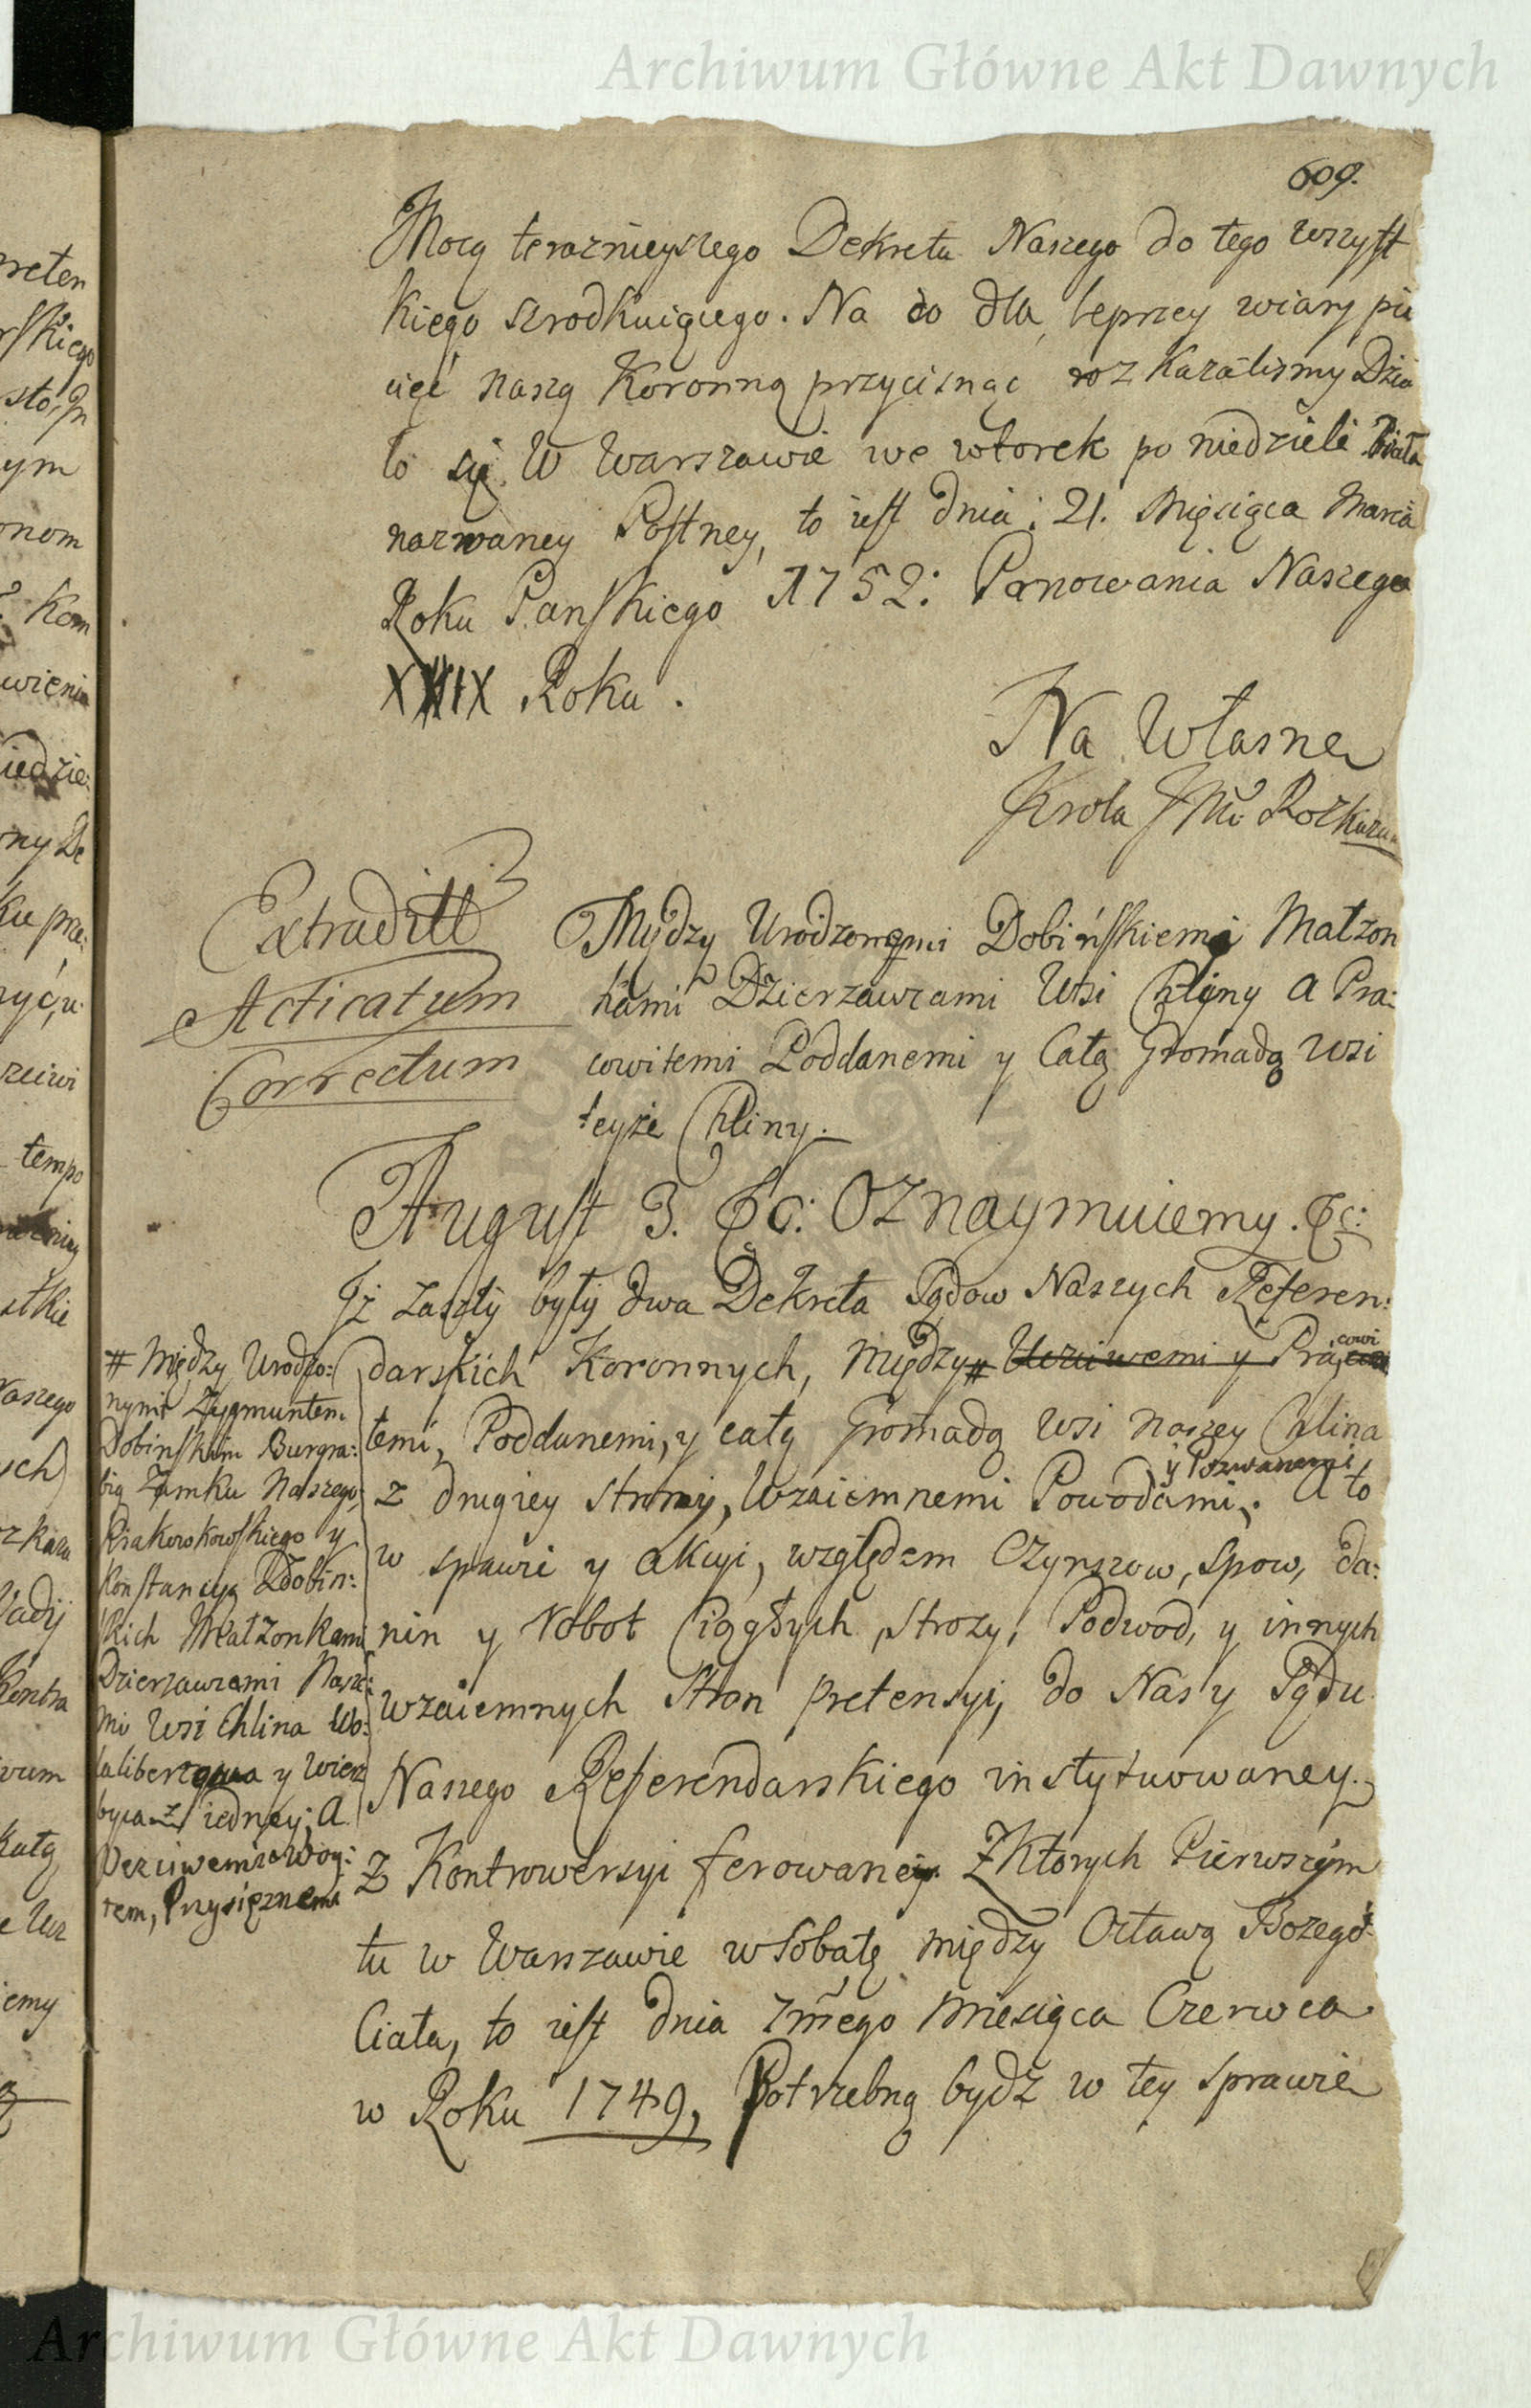 Archiwum Główne Akt Dawnych
609.
Mocą teraznieyszego Dekretu Naszego do tego wszyst
kiego szrodkuiącego. Na co dla lepszey wiary pie
częć naszą Koronną przycisnąc rozkazalismy Dzia
ło się W Warszawie we wtorek po niedzieli
nazwaney Postney, to iest dnia 21. Miesiąca Marca
Roku Panskiego 1752: Panowania Naszego
Roku.
Na Własne
Krola JMci Rozkaza
Extraditt
Acticatum
Correctum
Między Urodzonemi Dobińskiemi Małzon
kami Dzierzawcami Wsi Chliny a Pra:
cowitemi Poddanemi y Całą Gromadą Wsi
teyże Chliny.
August 3. &c: Oznaymuiemy. &c:
Iż zaszły były dwa Dekreta Sądow Naszych Referen:
darskich Koronnych, Między # Ucciwemi y Pracowi
temi, Poddanemi, y całą Gromadą wsi naszey Chlina
z drugiey strony, Wzaiemnemi Powodami y Pozwanemi. A to
w sprawie y akcyi, względem Czynszow, Spow, da:
nin y Robot Ciągłych, Strozy, Podwod, y innych
wzaiemnych Stron pretensyi, do Nas y Sądu
Naszego Referendarskiego instytuowaney.
z Kontrowersyi ferowane. Z Ktorych Pierwszym
tu w Warszawie w Sobotę między Octawą Bozego
Ciała, to iest dnia 7mego Miesiąca Czerwca
w Roku 1749, Potrzebną bydz w tey sprawie
# Między Urodzo:
nymi Zygmuntem
Dobinskim Burgra:
bią Zamku Naszego
Krakowskiego y
Konstancyą Dobin:
skich Małzonkami
Dzierzawcami Nasze:
mi Wsi Chlina Wo:
la libertowa y Wierz
byca z iedney; A
Ucciwemi Woy:
tem, Przysięznemi
Archiwum Główne Akt Dawnych